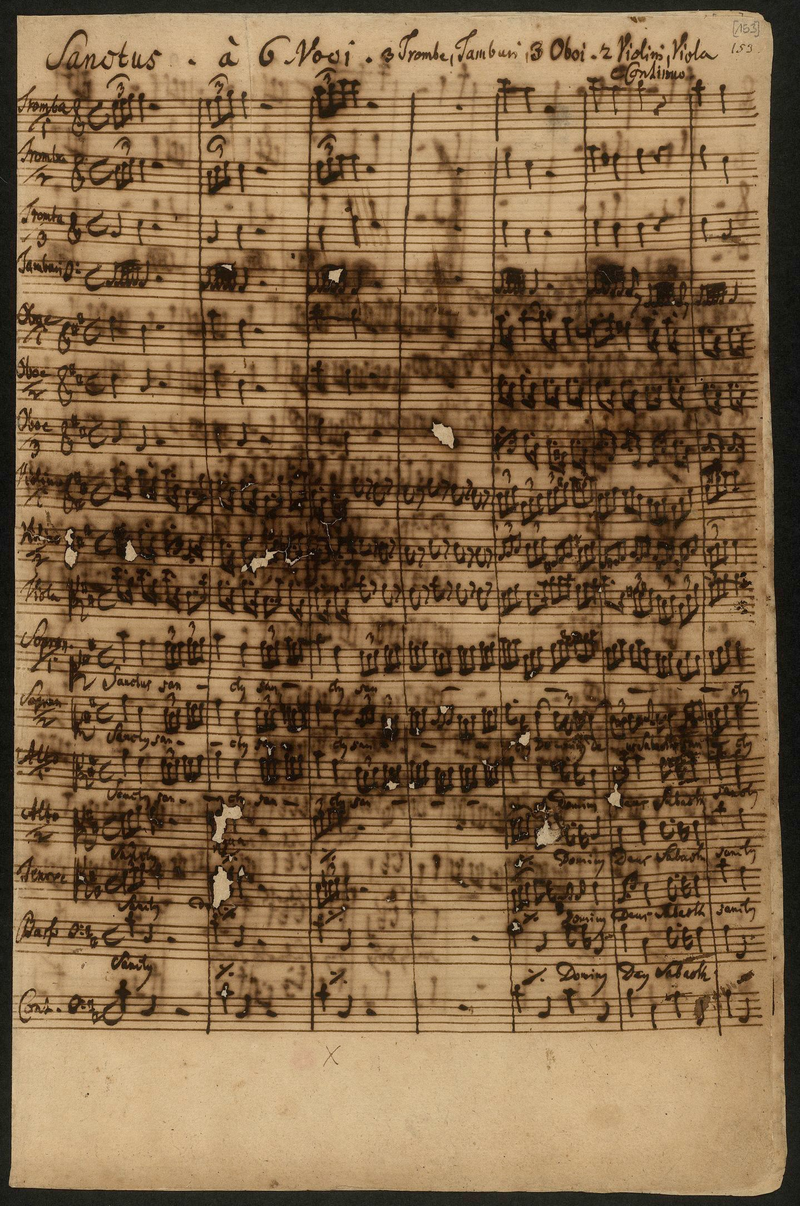 [153]
153
Sanctus. à 6 Voci. 3 Trombe, Tamburi, 3 Oboi. 2 Violini, Viola
e Continuo
Tromba
1
Tromba
2
Tromba
3
Tamburi
Oboe
1
Oboe
2
Oboe
3
Violino
1
2
Viola
Sopran.
1
Sanctus san - cty san - cty san - cty
Sopran
2
Sancty san - cty san - cty san - cty
Alto
1
Sancty san - cty san - cty san - Dominy Deus Sabaoth sancty
Alto
2
Sancty ٪ Dominy Deus Sabaoth sancty
Tenore
Sancty ٪ ٪ Dominy Deus Sabaoth sancty
Bass
Sancty ٪ ٪ ٪ Dominy Deus Sabaoth
Cont.
X